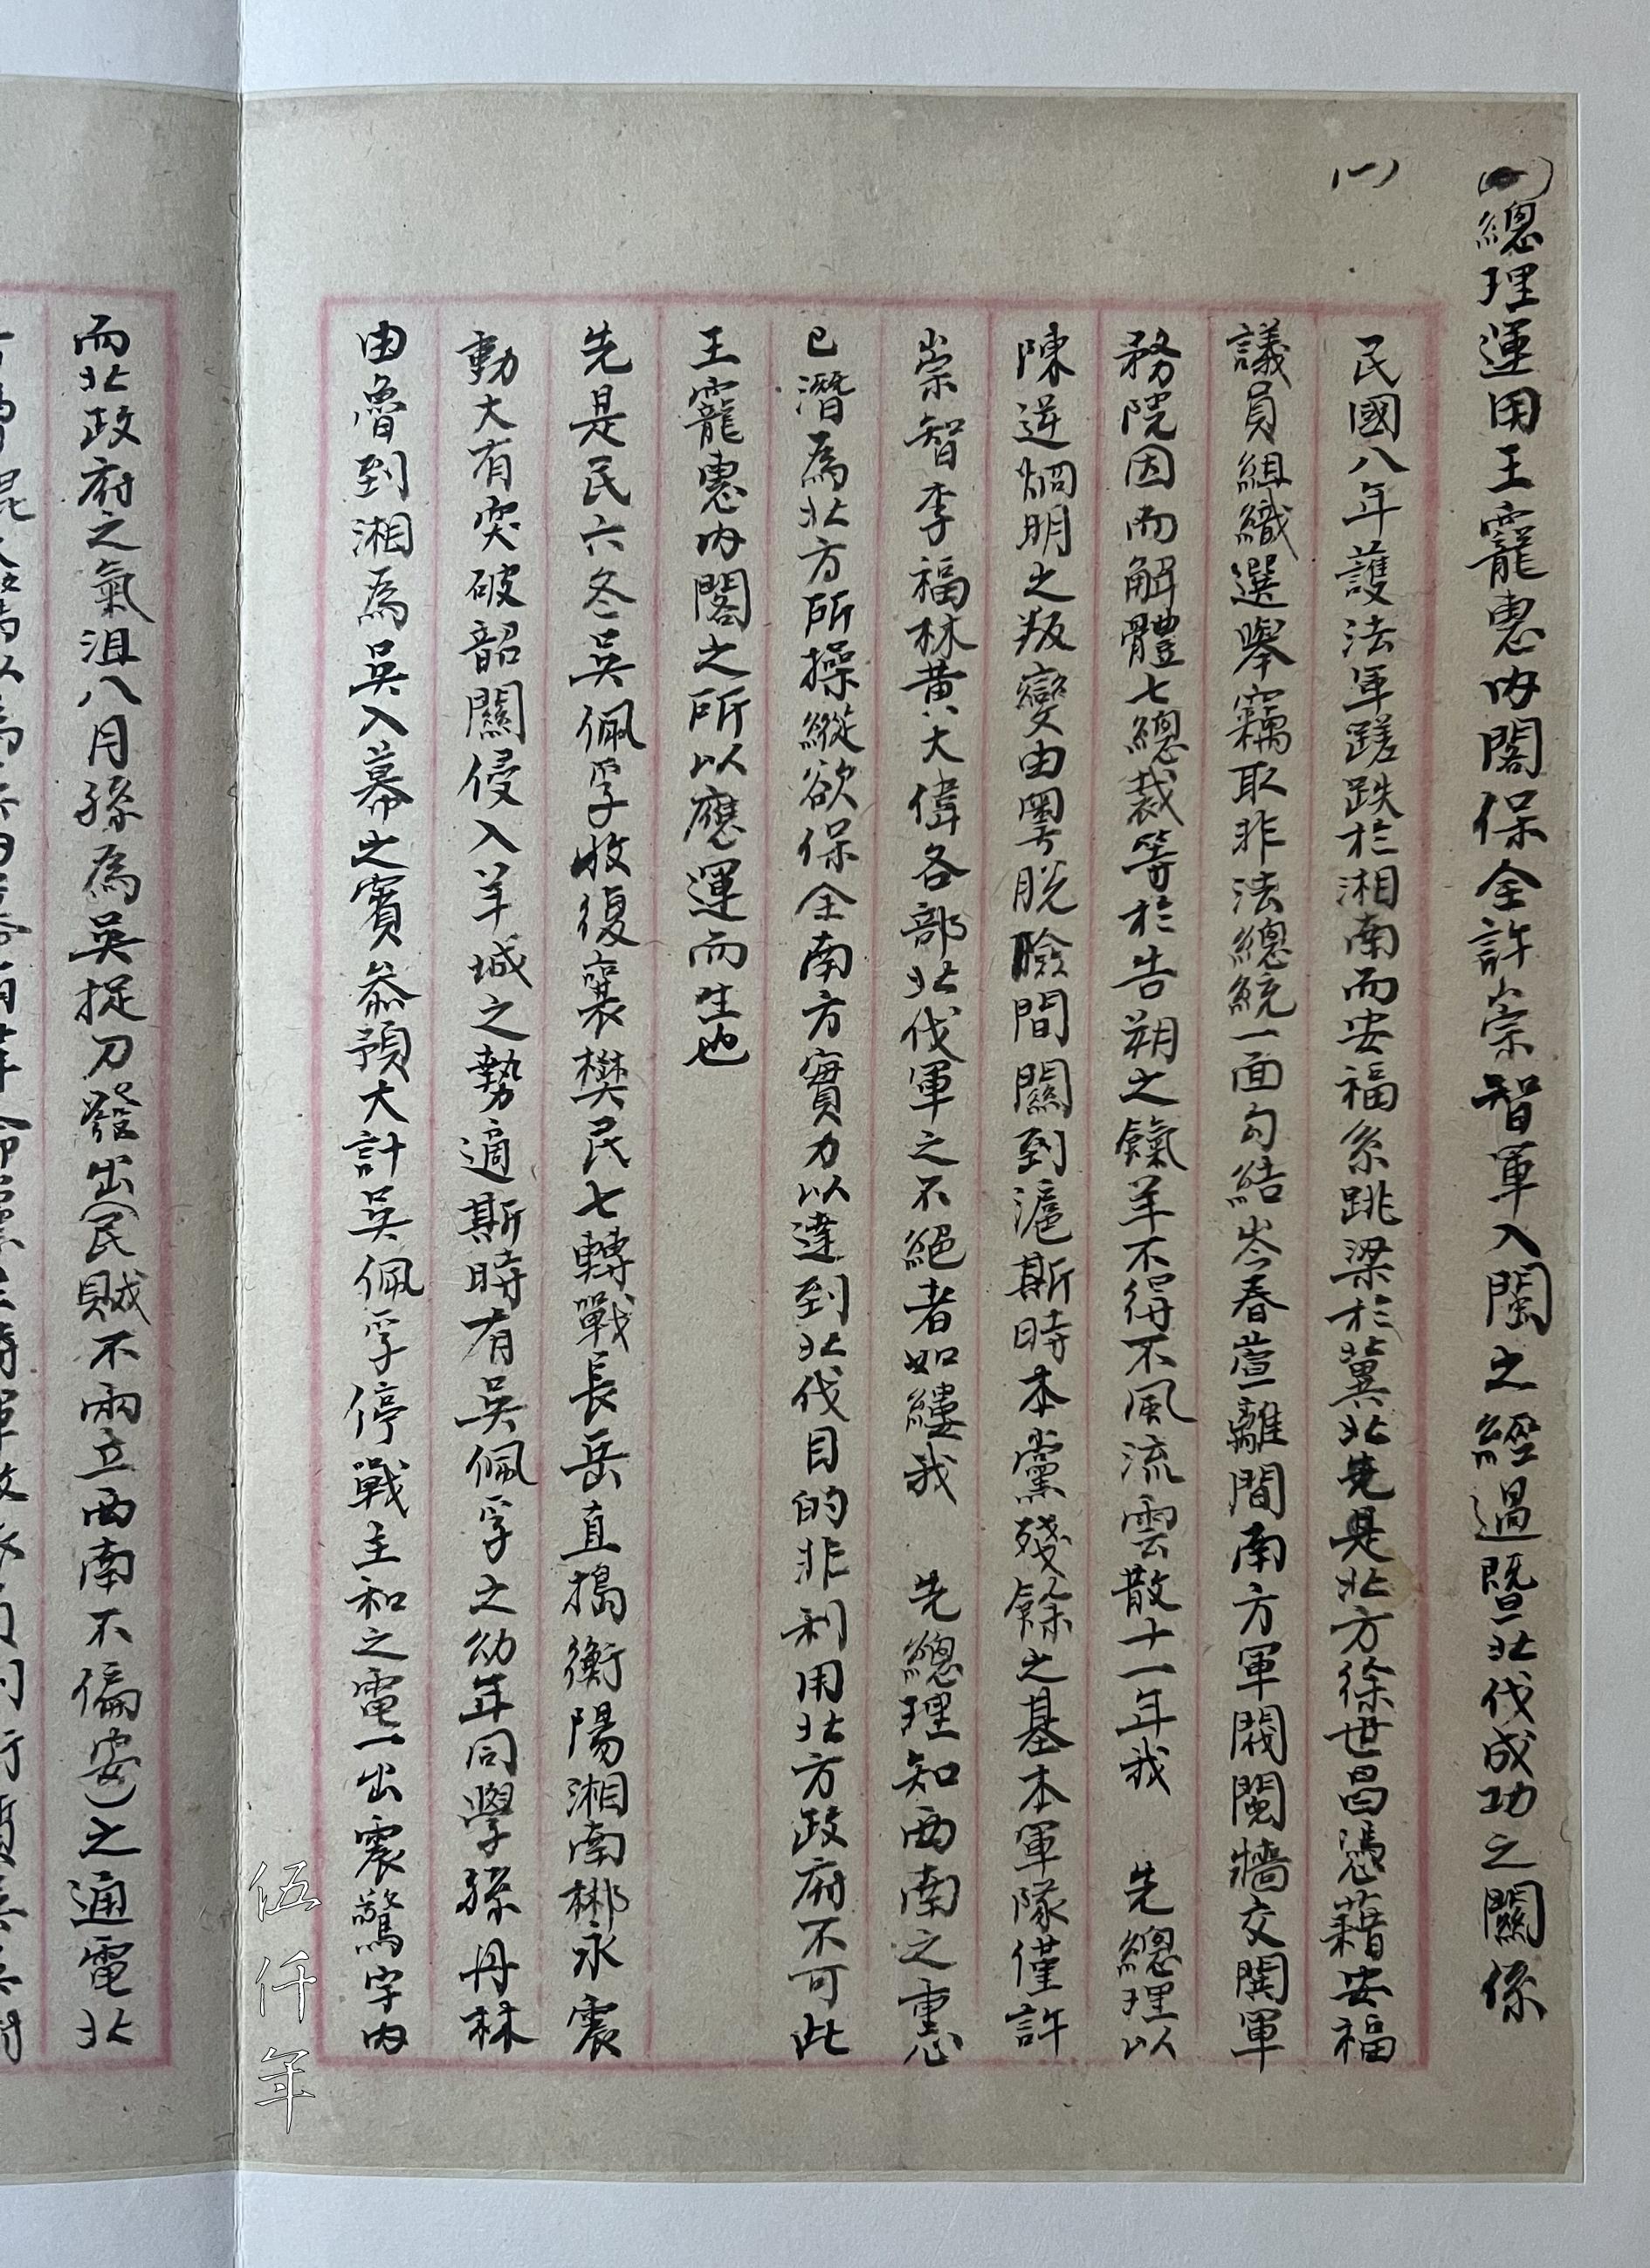 總理運用王寵惠內閣保全許崇智軍入閩之經過暨北伐成功之關係
(一)
民國八年護法軍蹉跌於湘南而安福系跳梁於冀北先是北方徐世昌憑藉安福
議員組織選舉竊取非法總統一面勾結岑春萱離間南方軍閥鬩牆交鬨軍
務院因而解體七總裁等於告朔之餼羊不得不風流雲散十一年我 先總理以
陳逆烱明之叛變由粵脫險間關到滬斯時本黨殘餘之基本軍隊僅許
崇智李福林黃大偉各部北伐軍之不絕者如縷我 先總理知西南之重心
已潛為北方所操縱欲保全南方實力以達到北伐目的非利用北方政府不可此
王寵惠內閣之所以應運而生也
先是民六冬吳佩孚收復襄樊民七轉戰長岳直搗衡陽湘南郴永震
動大有突破韶關侵入羊城之勢適斯時有吳佩孚之幼年同學孫丹林
由魯到湘為吳入幕之賓叅預大計吳佩孚停戰主和之電一出震驚宇內
而北政府之氣沮八月孫為吳捉刀發出(民賊不兩立西南不偏安)之通電北
伍仟年